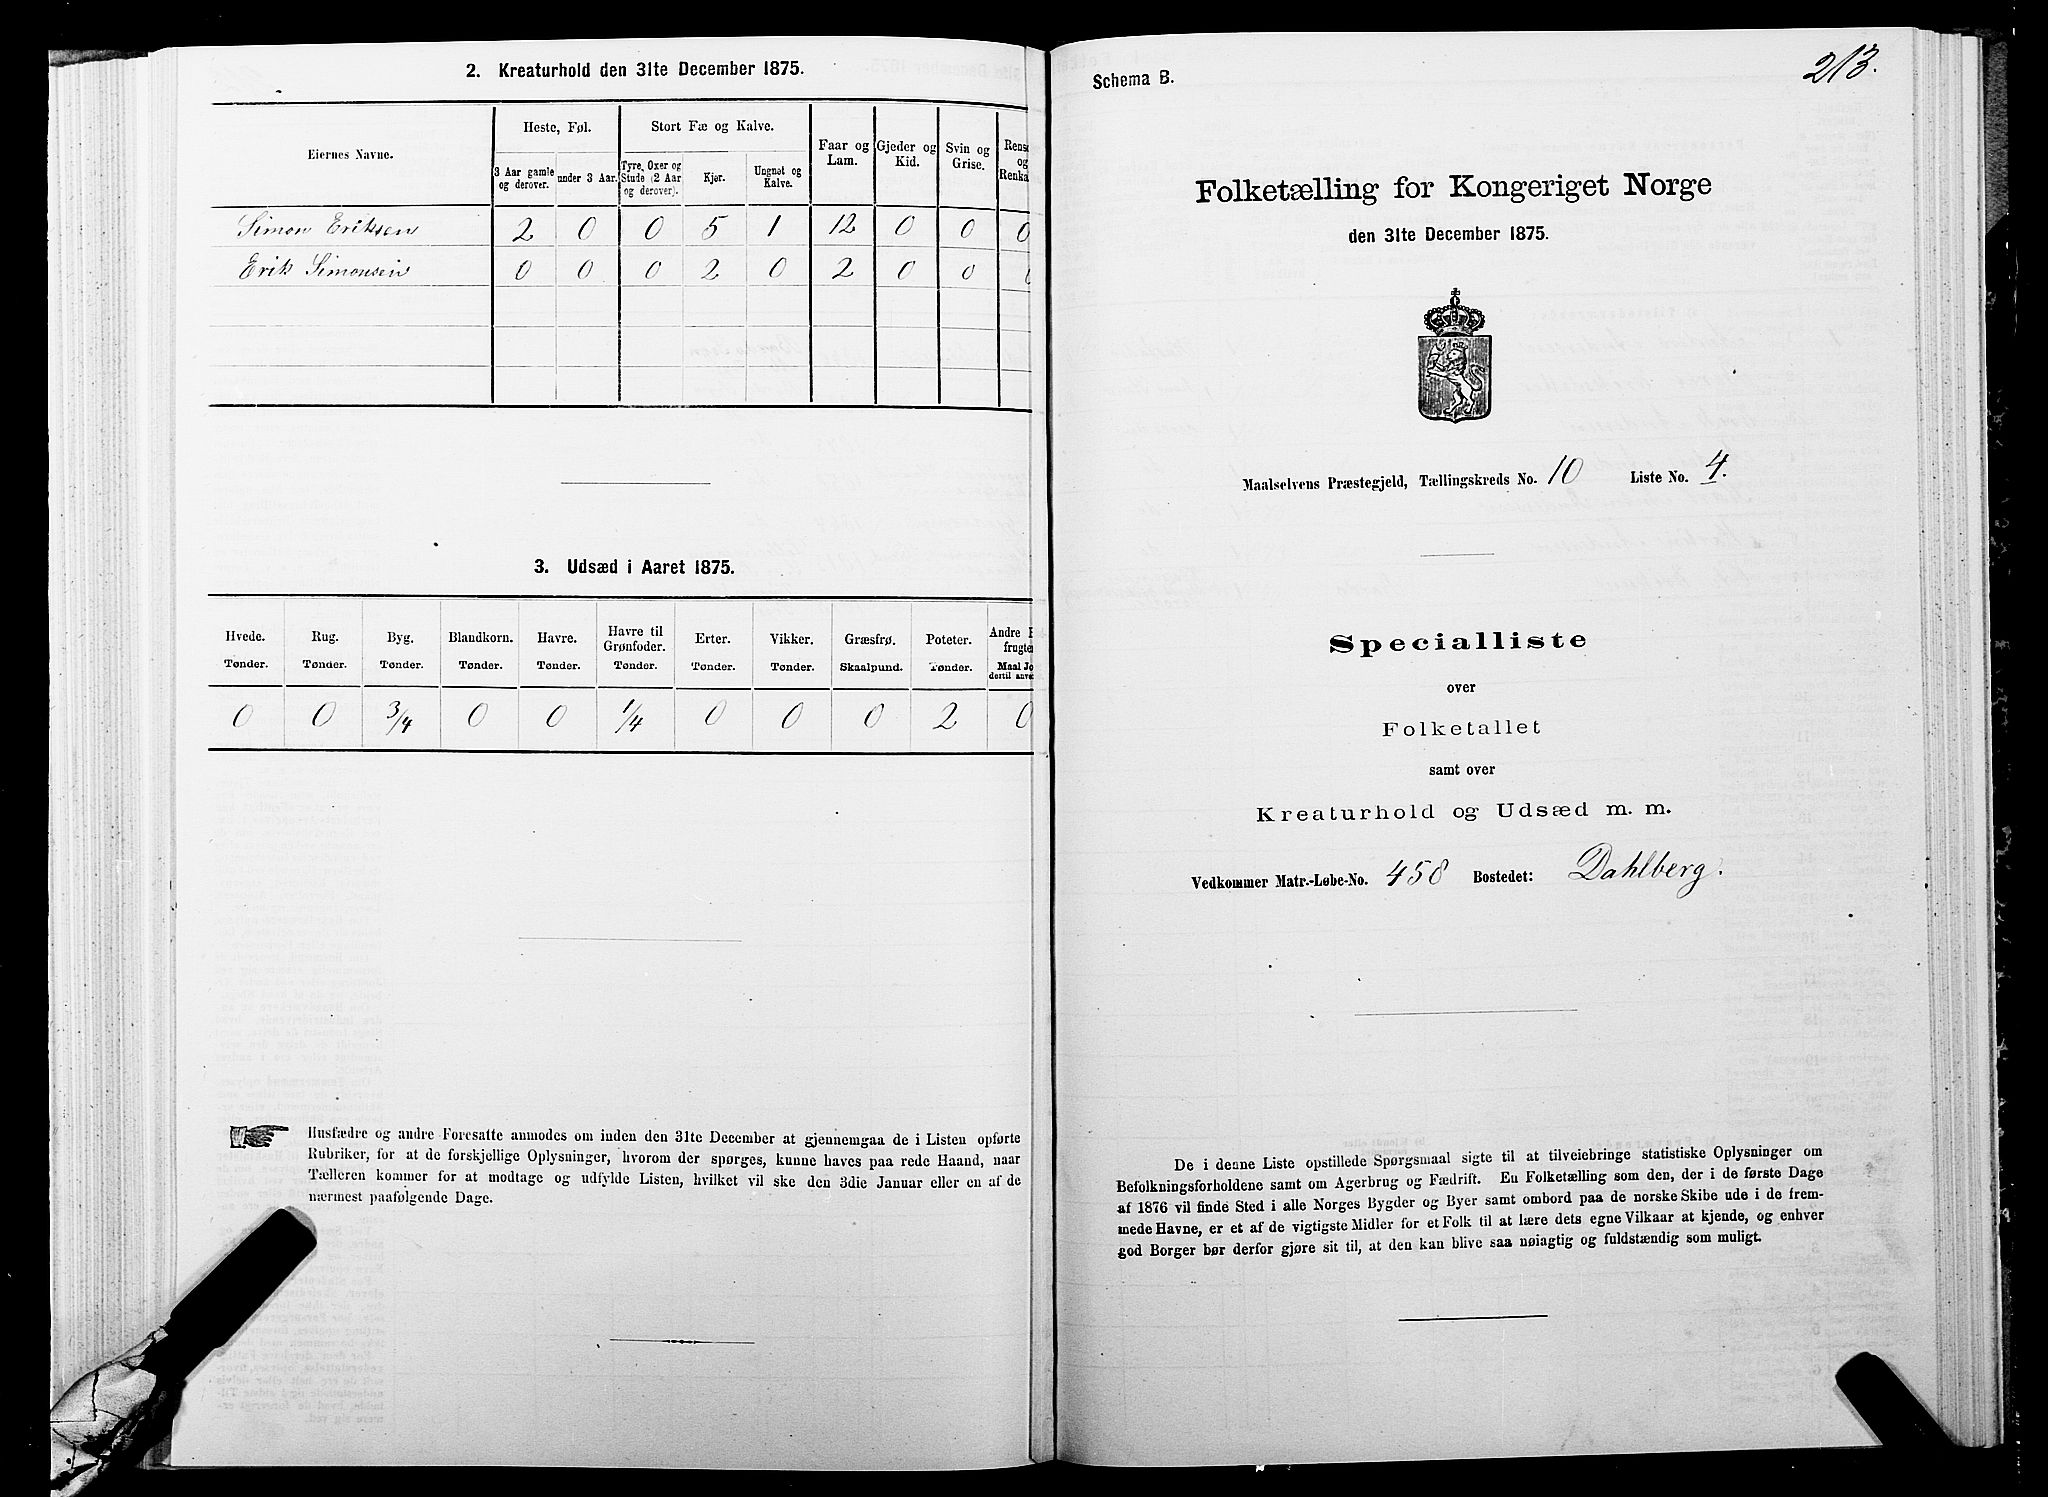 2. Kreaturhold den 31te December 1875.
Eiernes Navne.
Heste, Føl.
Stort Fæ og Kalve.
Faar og Lam.
Gjeder og Kid.
Svin og Grise.
Rens
og
Renka
3 Aar gamle og derover.
under 3 Aar.
Tyre, Oxer og Stude (2 Aar og derover).
Kjør.
Ungnøt og Kalve.
Simon Eriksen 2 0 0 5 1 12 0 0 0
Erik Simonsen 0 0 0 2 0 2 0 0 0
3. Udsæd i Aaret 1875.
Hvede. Rug. Byg. Blandkorn. Havre. Havre til Grønfoder. Erter. Vikker. Græsfrø. Poteter. Andre
frugter
Tønder. Tønder. Tønder. Tønder. Tønder. Tønder. Tønder. Tønder. Skaalpund. Tønder. Maal Jo
dertil anve
0 0 3/4 0 0 1/4 0 0 0 2 0
Husfædre og andre Foresatte anmodes om inden den 31te December at gjennemgaa de i Listen opførte
Rubriker, for at de forskjellige Oplysninger, hvorom der spørges, kunne haves paa rede Haand, naar
Tælleren kommer for at modtage og udfylde Listen, hvilket vil ske den 3die Januar eller en af de
nærmest paafølgende Dage.
213.
Schema B.
Folketælling for Kongeriget Norge
den 31te December 1875.
Maalselvens Præstegjeld, Tællingskreds No. 10 Liste No. 4.
Specialliste
over
Folketallet
samt over
Kreaturhold og Udsæd m. m.
Vedkommer Matr.-Løbe-No. 458 Bostedet: Dahlberg.
De i denne Liste opstillede Spørgsmaal sigte til at tilveiebringe statistiske Oplysninger om
Befolkningsforholdene samt om Agerbrug og Fædrift. En Folketælling som den, der i de første Dage
af 1876 vil finde Sted i alle Norges Bygder og Byer samt ombord paa de norske Skibe ude i de frem-
mede Havne, er et af de vigtigste Midler for et Folk til at lære dets egne Vilkaar at kjende, og enhver
god Borger bør derfor gjøre sit til, at den kan blive saa nøiagtig og fuldstændig som muligt.